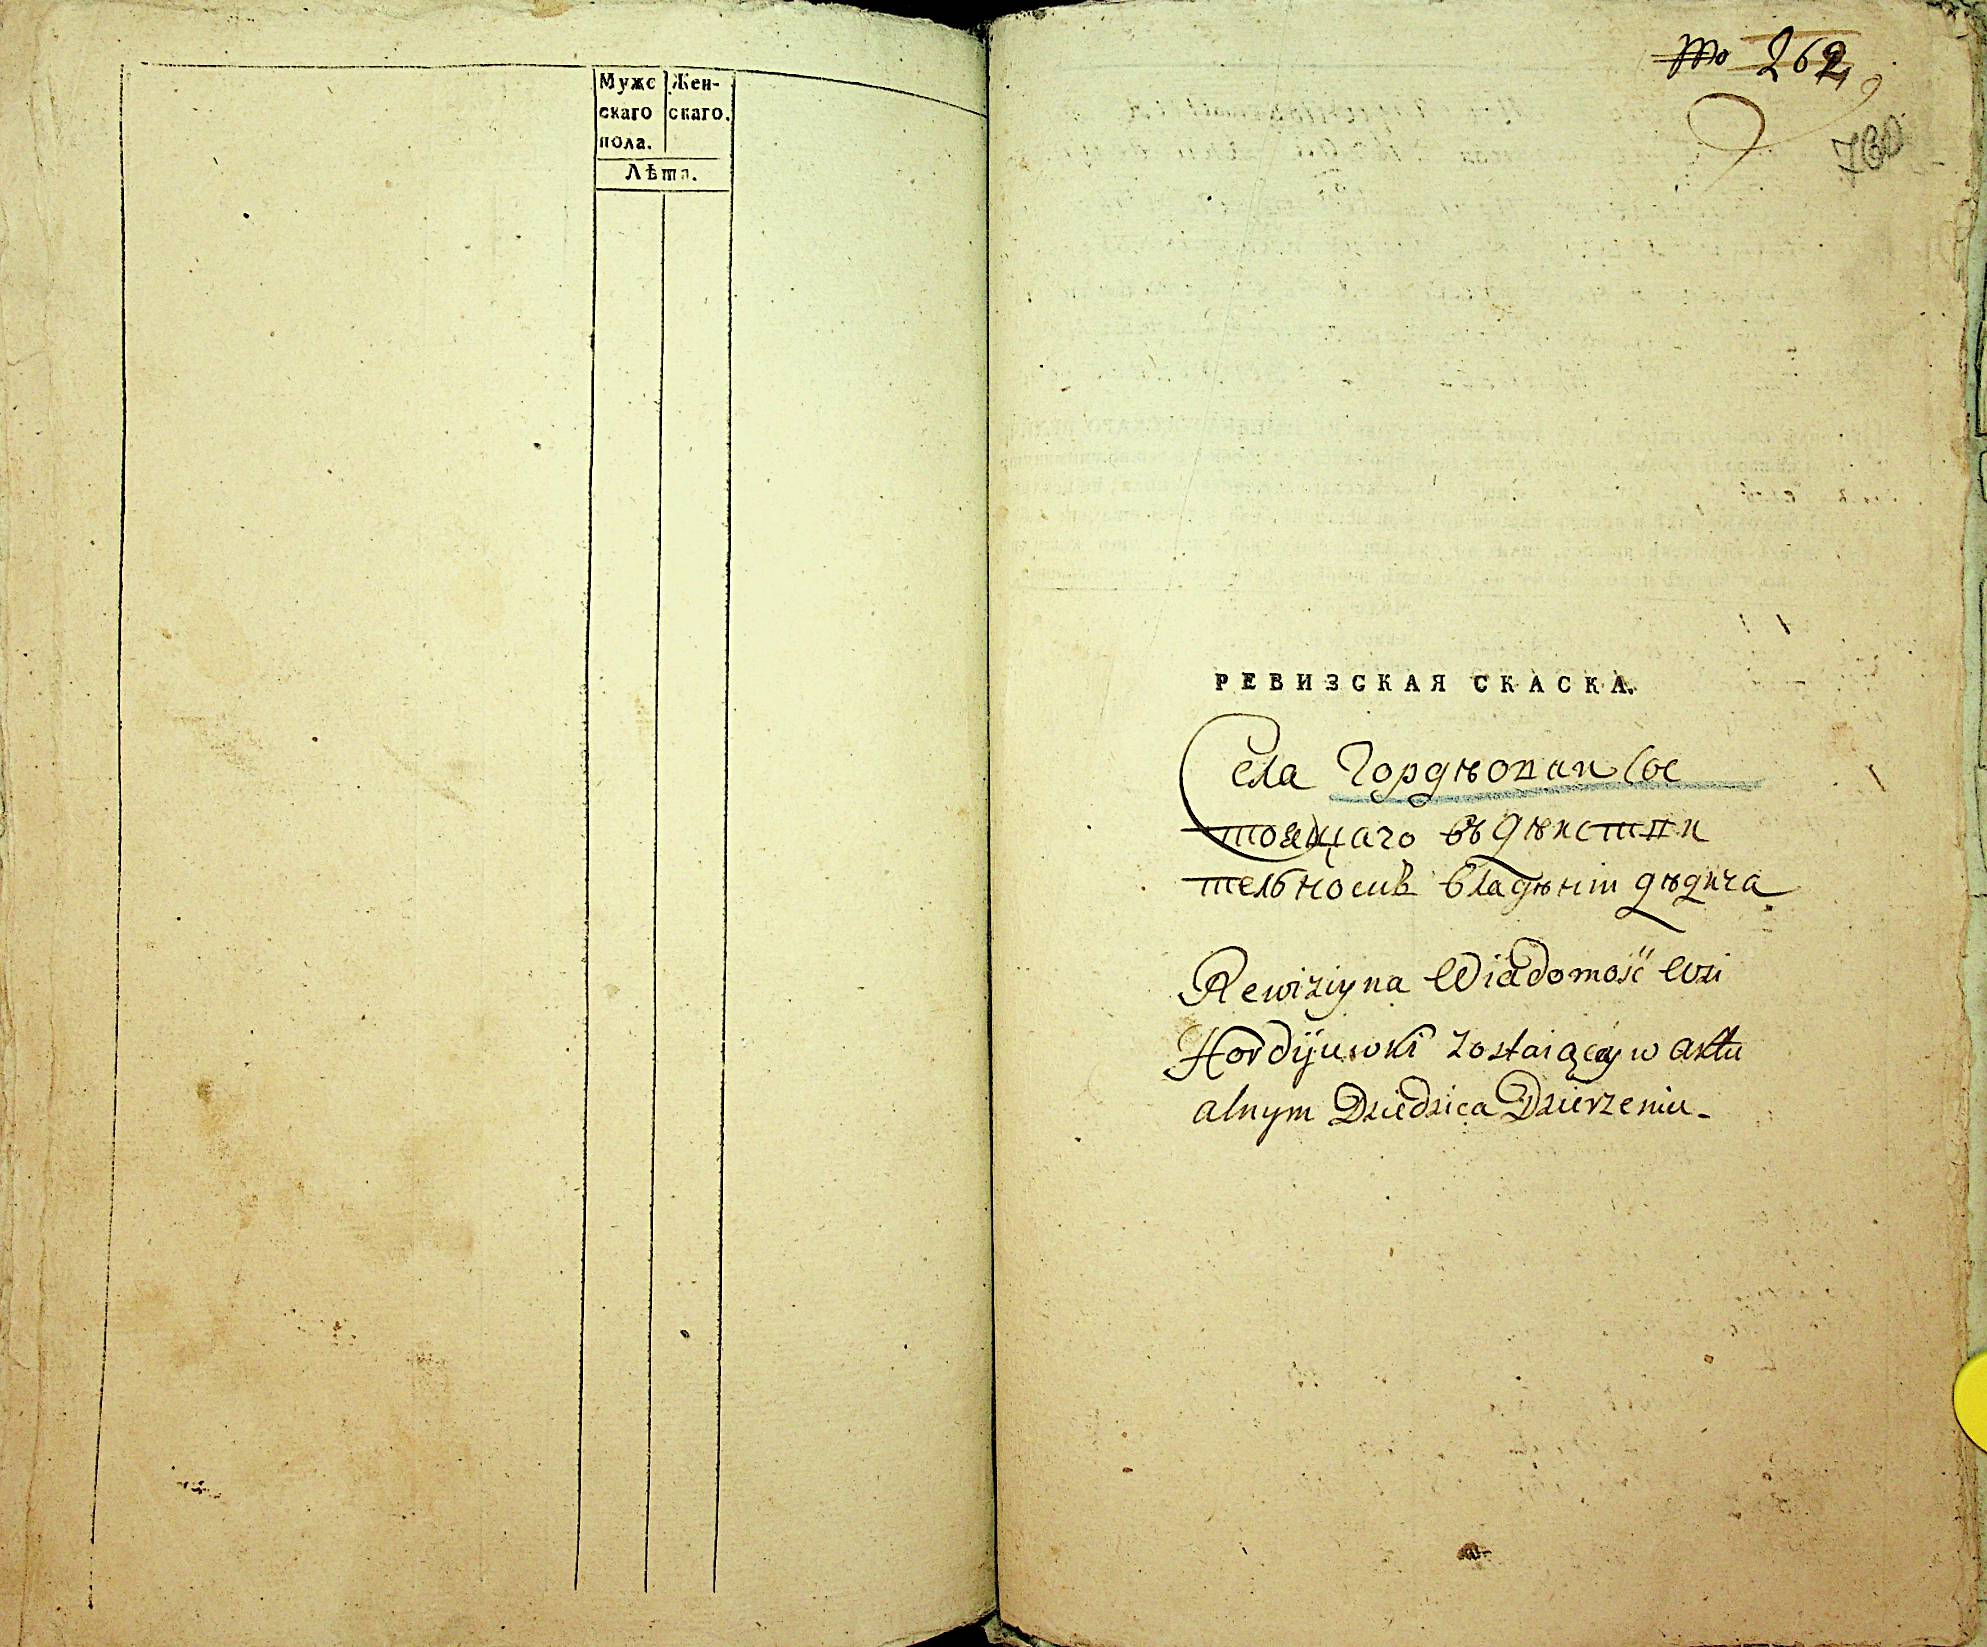 Мужс Жен-
скаго скаго.
пола.
Лѣта.
262
760
РЕВИЗСКАЯ СКАСКА.
Села Гордѣовки Сос
тоящаго въ дѣистви
тельномъ владѣніи дѣдича
Rewiziyna Wiadomość Wsi
Hordijuwki zostaiącey w aktu
alnym Dziedzica Dzierzeniu.